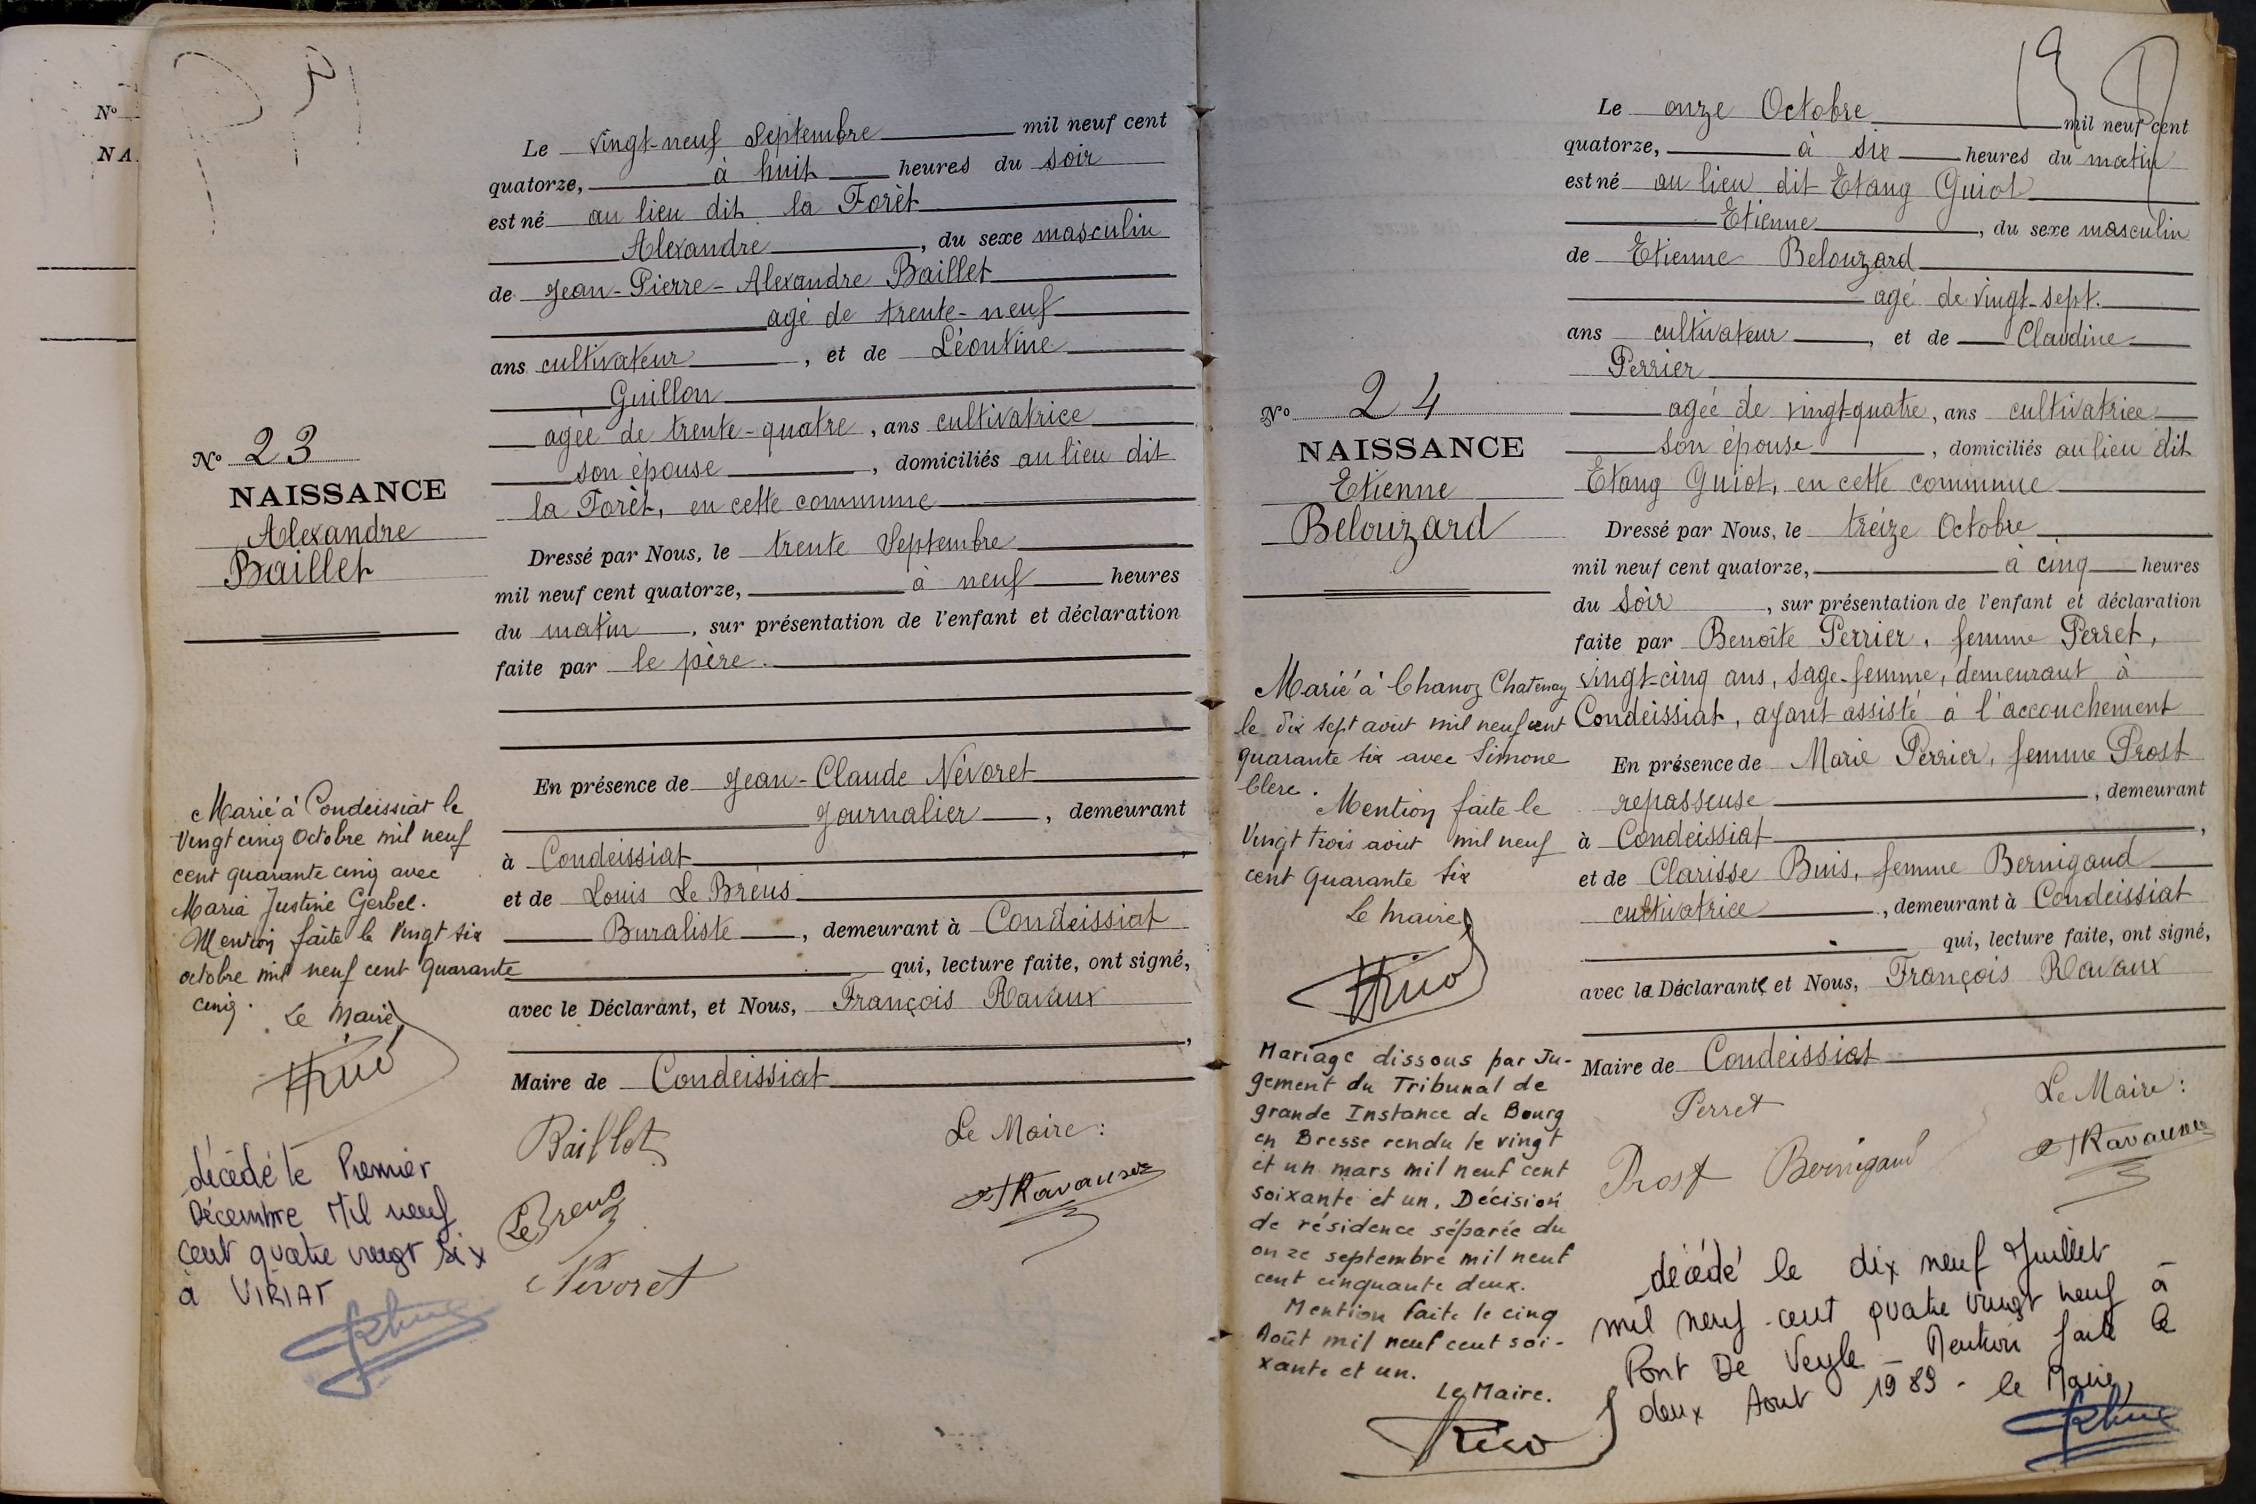 N°
NA
Le vingt-neuf Septembre mil neuf cent
quatorze, à huit heures du soir
est né au lieu dit la Forêt
Alexandre, du sexe masculin
de Jean-Pierre-Alexandre Baillet
agé de trente-neuf
ans cultivateur, et de Léontine
Guillon
agée de trente-quatre, ans cultivatrice
son épouse, domiciliés au lieu dit
la Forêt, en cette commune
Dressé par Nous, le trente Septembre
mil neuf cent quatorze, à neuf heures
du matin, sur présentation de l'enfant et déclaration
faite par le père.
En présence de Jean-Claude Névoret
Journalier, demeurant
à Condeissiat,
et de Louis Le Bréus
Buraliste, demeurant à Condeissiat
qui, lecture faite, ont signé,
avec le Déclarant, et Nous, François Ravaux,
Maire de Condeissiat
Baillet
Le Maire :
Le Breus
Ravaux
Névoret
N° 23
NAISSANCE
Alexandre
Baillet
Marié à Condeissiat le
vingt cinq Octobre mil neuf
cent quarante cinq avec
Maria Justine Gerbel.
Mention faite le vingt six
octobre mil neuf cent quarante
cinq.
Le Maire
décédé le Premier
Décembre Mil neuf
cent quatre vingt six
à VIRIAT
19
Le onze Octobre mil neuf cent
quatorze, à six heures du matin
est né au lieu dit Etang Guiot
Etienne, du sexe masculin
de Etienne Belouzard
agé de vingt-sept.
ans cultivateur, et de Claudine
Perrier
agée de vingt-quatre, ans cultivatrice
son épouse, domiciliés au lieu dit
Etang Guiot, en cette commune
Dressé par Nous, le treize Octobre
mil neuf cent quatorze, à cinq heures
du soir, sur présentation de l'enfant et déclaration
faite par Benoîte Perrier, femme Perret,
vingt-cinq ans, sage-femme, demeurant à
Condeissiat, ayant assisté à l'accouchement
En présence de Marie Perrier, femme Prost
repasseuse, demeurant
à Condeissiat,
et de Clarisse Buis, femme Bernigaud
cultivatrice, demeurant à Condeissiat
qui, lecture faite, ont signé,
avec la Déclarante et Nous, François Ravaux
Maire de Condeissiat
Perret
Le Maire :
Prost Bernigaud
Ravaux
N° 24
NAISSANCE
Etienne
Belouzard
Marié à Chanoz Chatenay
le dix sept aout mil neuf cent
quarante six avec Simone
Clerc.
Mention faite le
vingt trois aout mil neuf
cent quarante six
Le Maire
Mariage dissous par Ju-
gement du Tribunal de
grande Instance de Bourg
en Bresse rendu le vingt
et un mars mil neuf cent
soixante et un. Décision
de résidence séparée du
onze septembre mil neuf
cent cinquante deux.
Mention faite le cinq
Août mil neuf cent soi-
xante et un.
Le Maire.
décédé le dix neuf Juillet
mil neuf cent quatre vingt neuf à
Pont De Veyle - Mention faite le
deux Aout 1989 - le Maire,